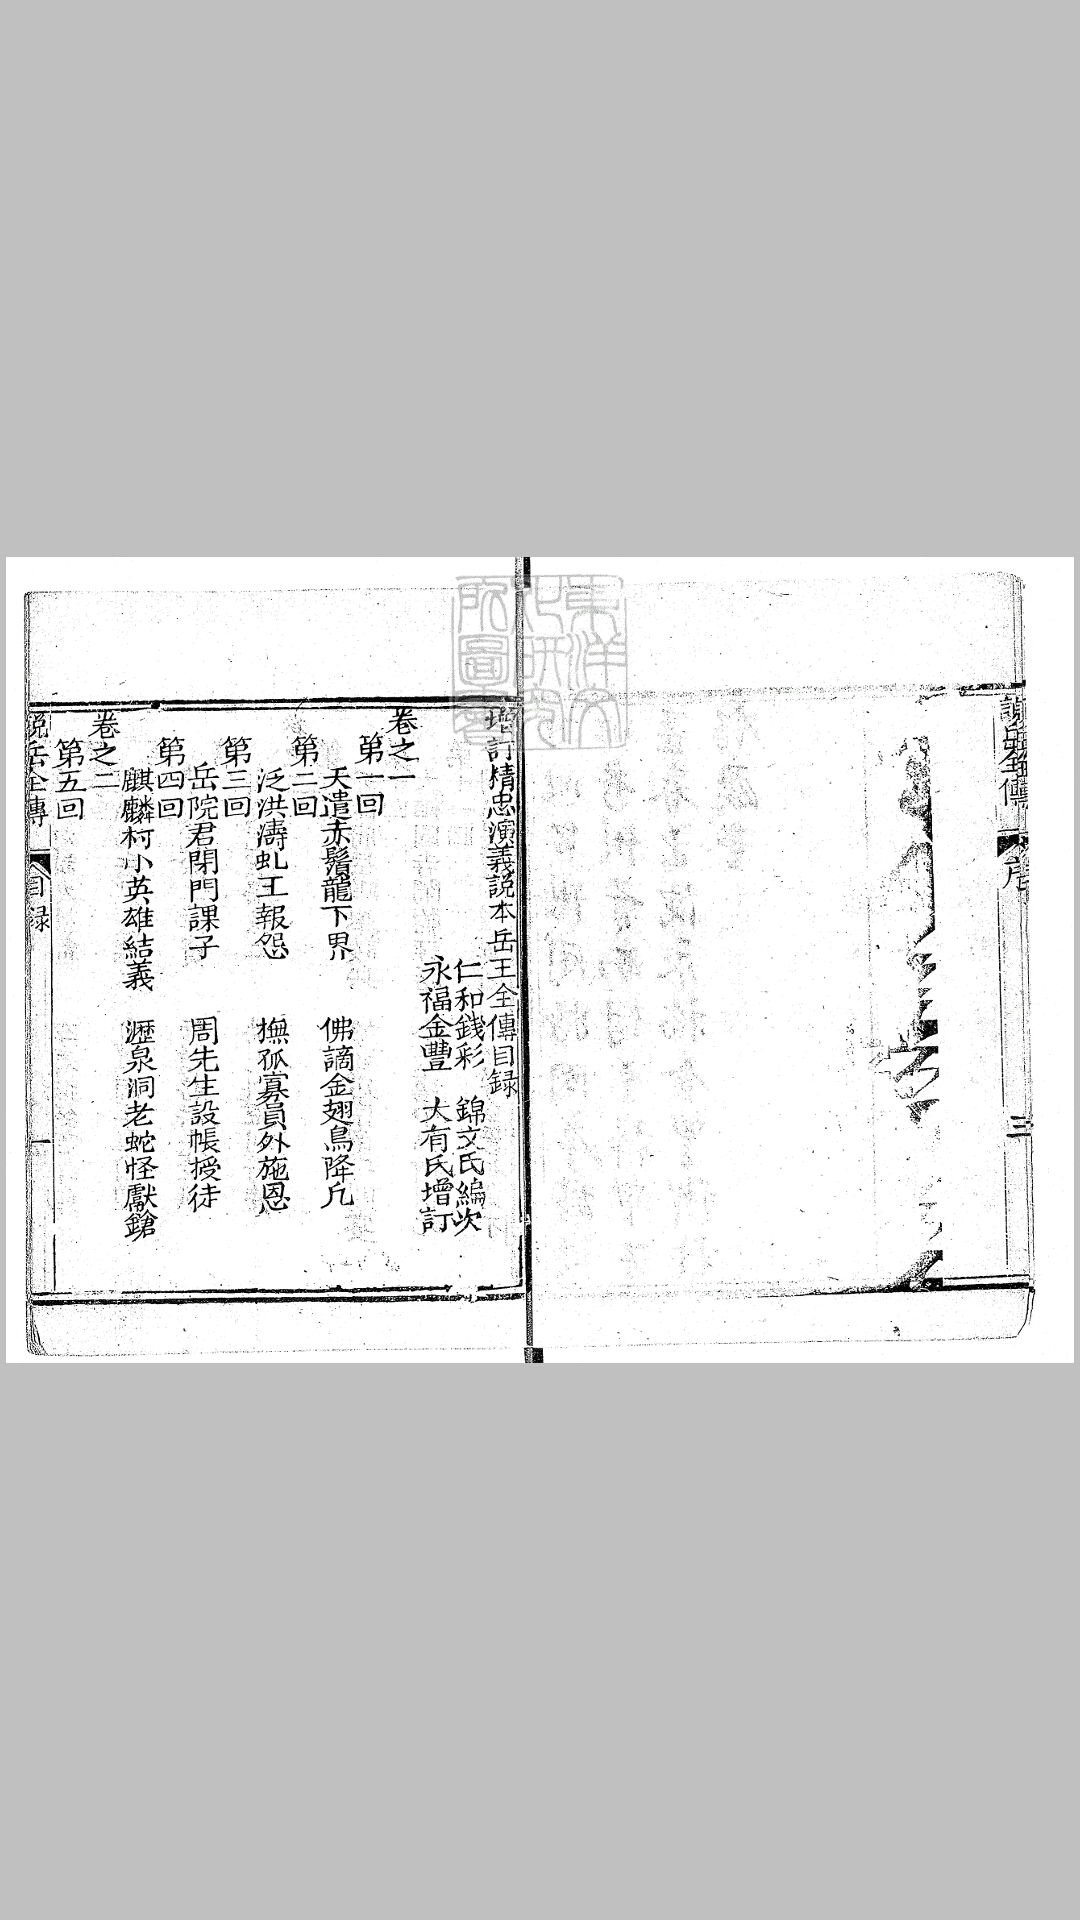 說岳全傳
序
三
增訂精忠演義說本岳王全傳目録
仁和錢彩 錦文氏編次
永福金豐 大有氏增訂
卷之一
第一回
天遣赤鬚龍下界 佛謫金翅鳥降凡
第二回
泛洪濤虬王報怨 撫孤寡員外施恩
第三回
岳院君閉門課子 周先生設帳授徒
第四回
麒麟村小英雄結義 瀝泉洞老蛇怪獻鎗
卷之二
第五回
說岳全傳
目録
一
東洋文化研究所圖書